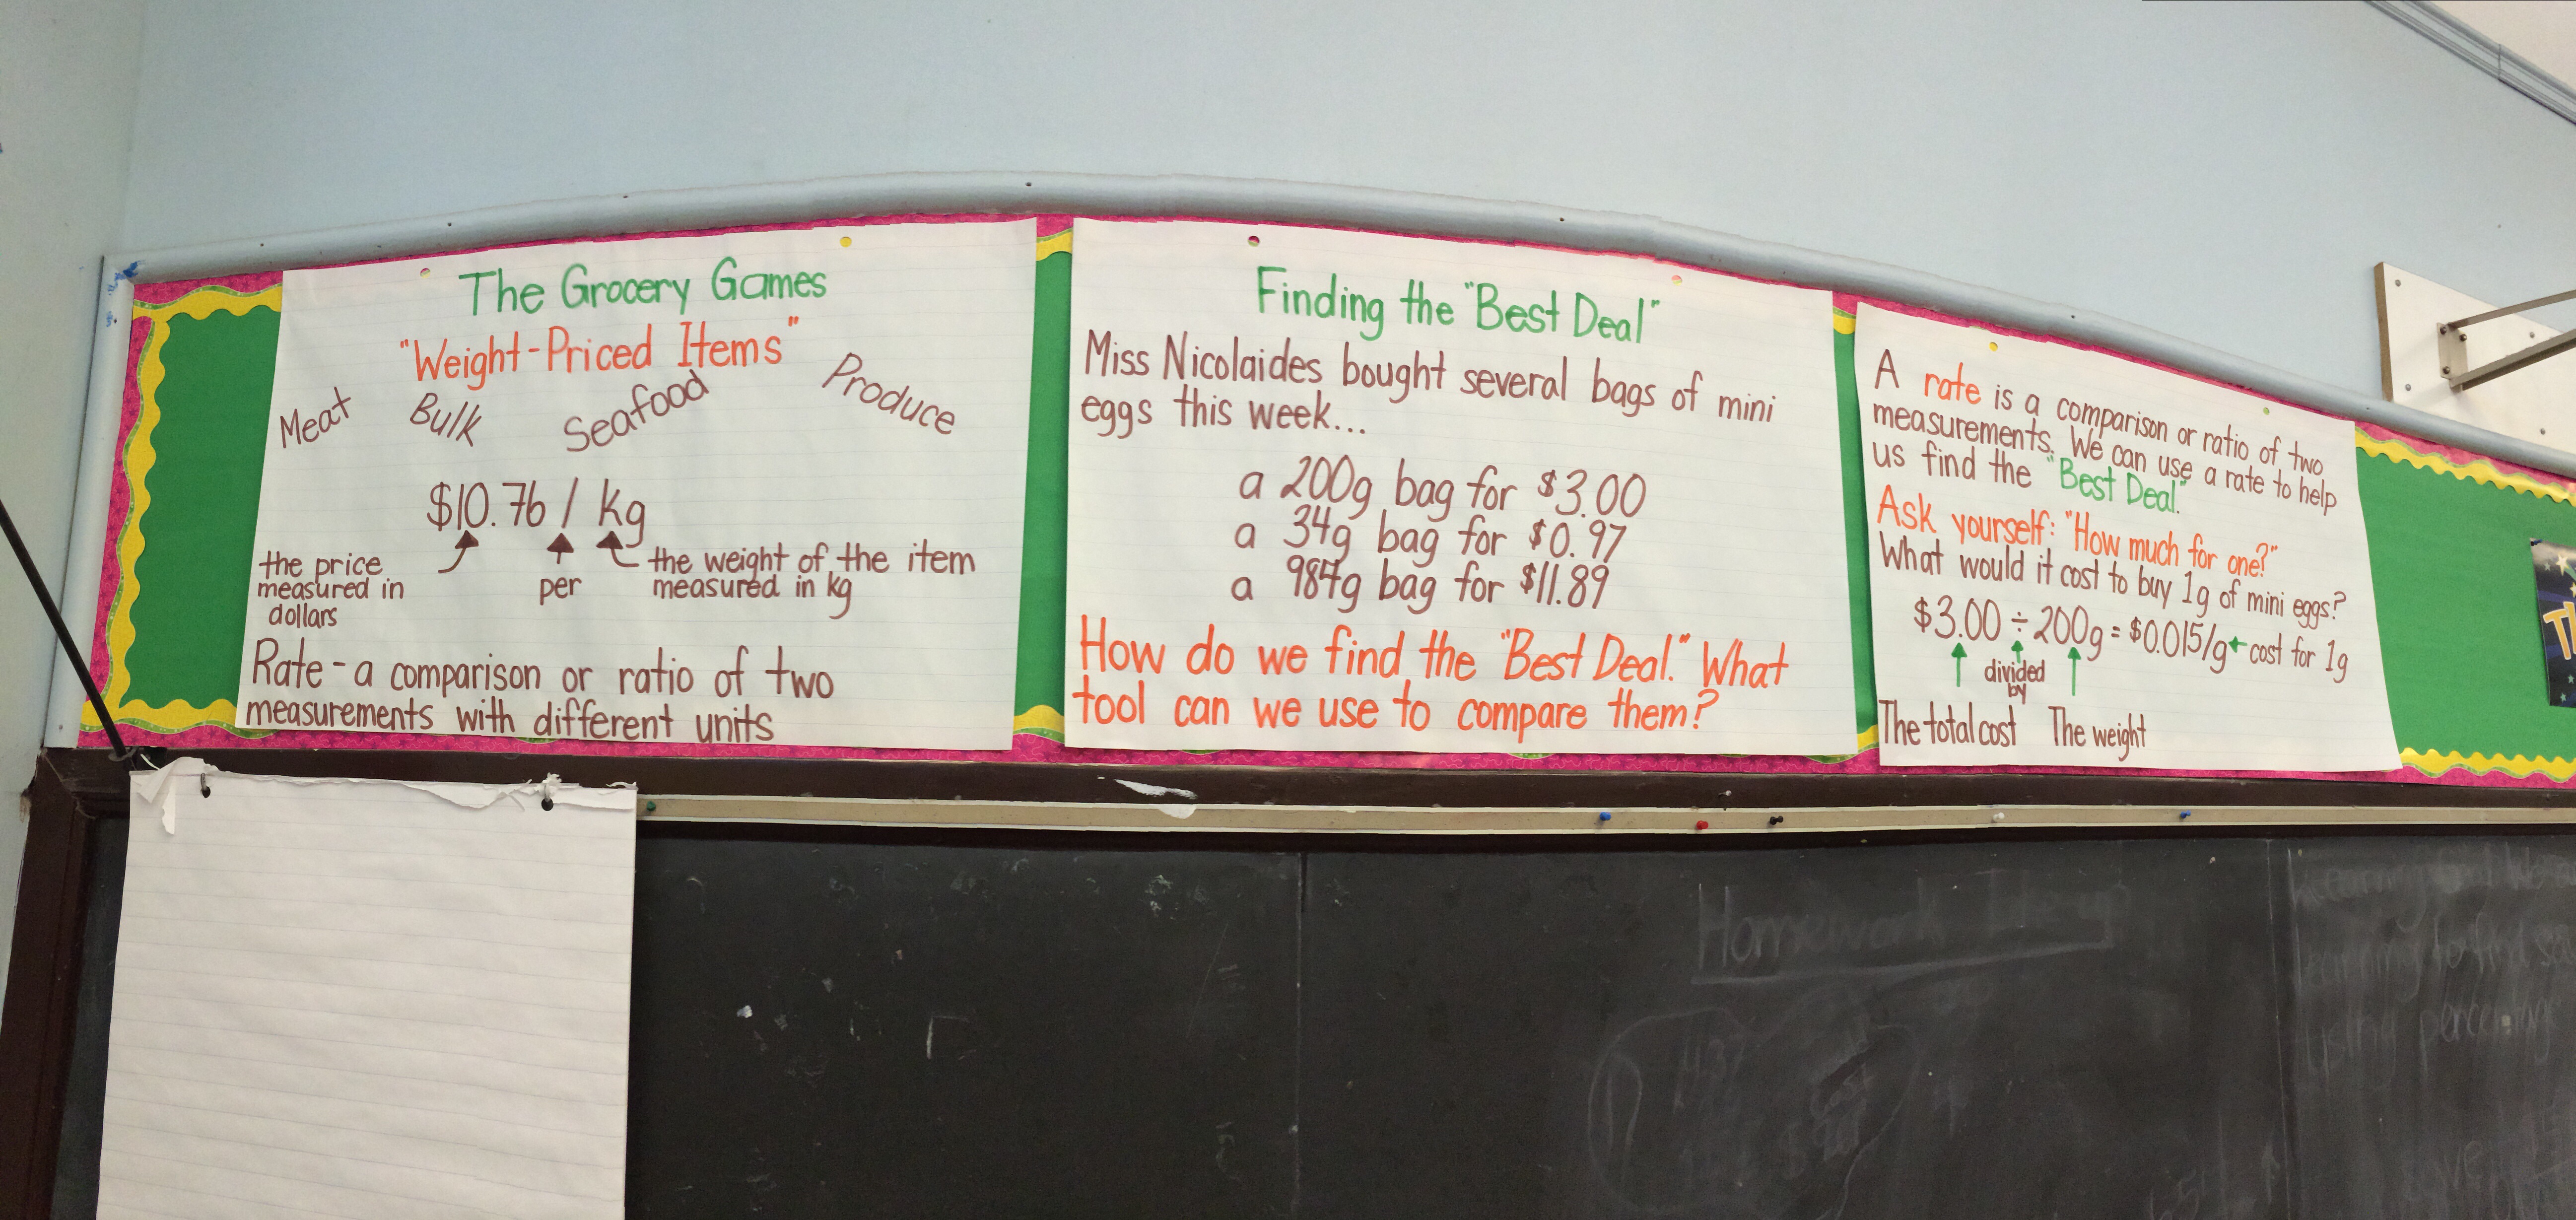 The Grocery Games
"Weight-Priced Items"
Meat Bulk Seafood Produce
$10.76 / kg
the price
measured in
dollars
per
the weight of the item
measured in kg
Rate - a comparison or ratio of two
measurements with different units
Finding the "Best Deal"
Miss Nicolaides bought several bags of mini
eggs this week...
a 200g bag for $3.00
a 34g bag for $0.97
a 984g bag for $11.89
How do we find the "Best Deal." What
tool can we use to compare them?
A rate is a comparison or ratio of two
measurements. We can use a rate to help
us find the "Best Deal".
Ask yourself: "How much for one?"
What would it cost to buy 1g of mini eggs?
$3.00 ÷ 200g = $0.015/g ← cost for 1g
divided
by
The total cost The weight
Homework
learning to find
using percentage